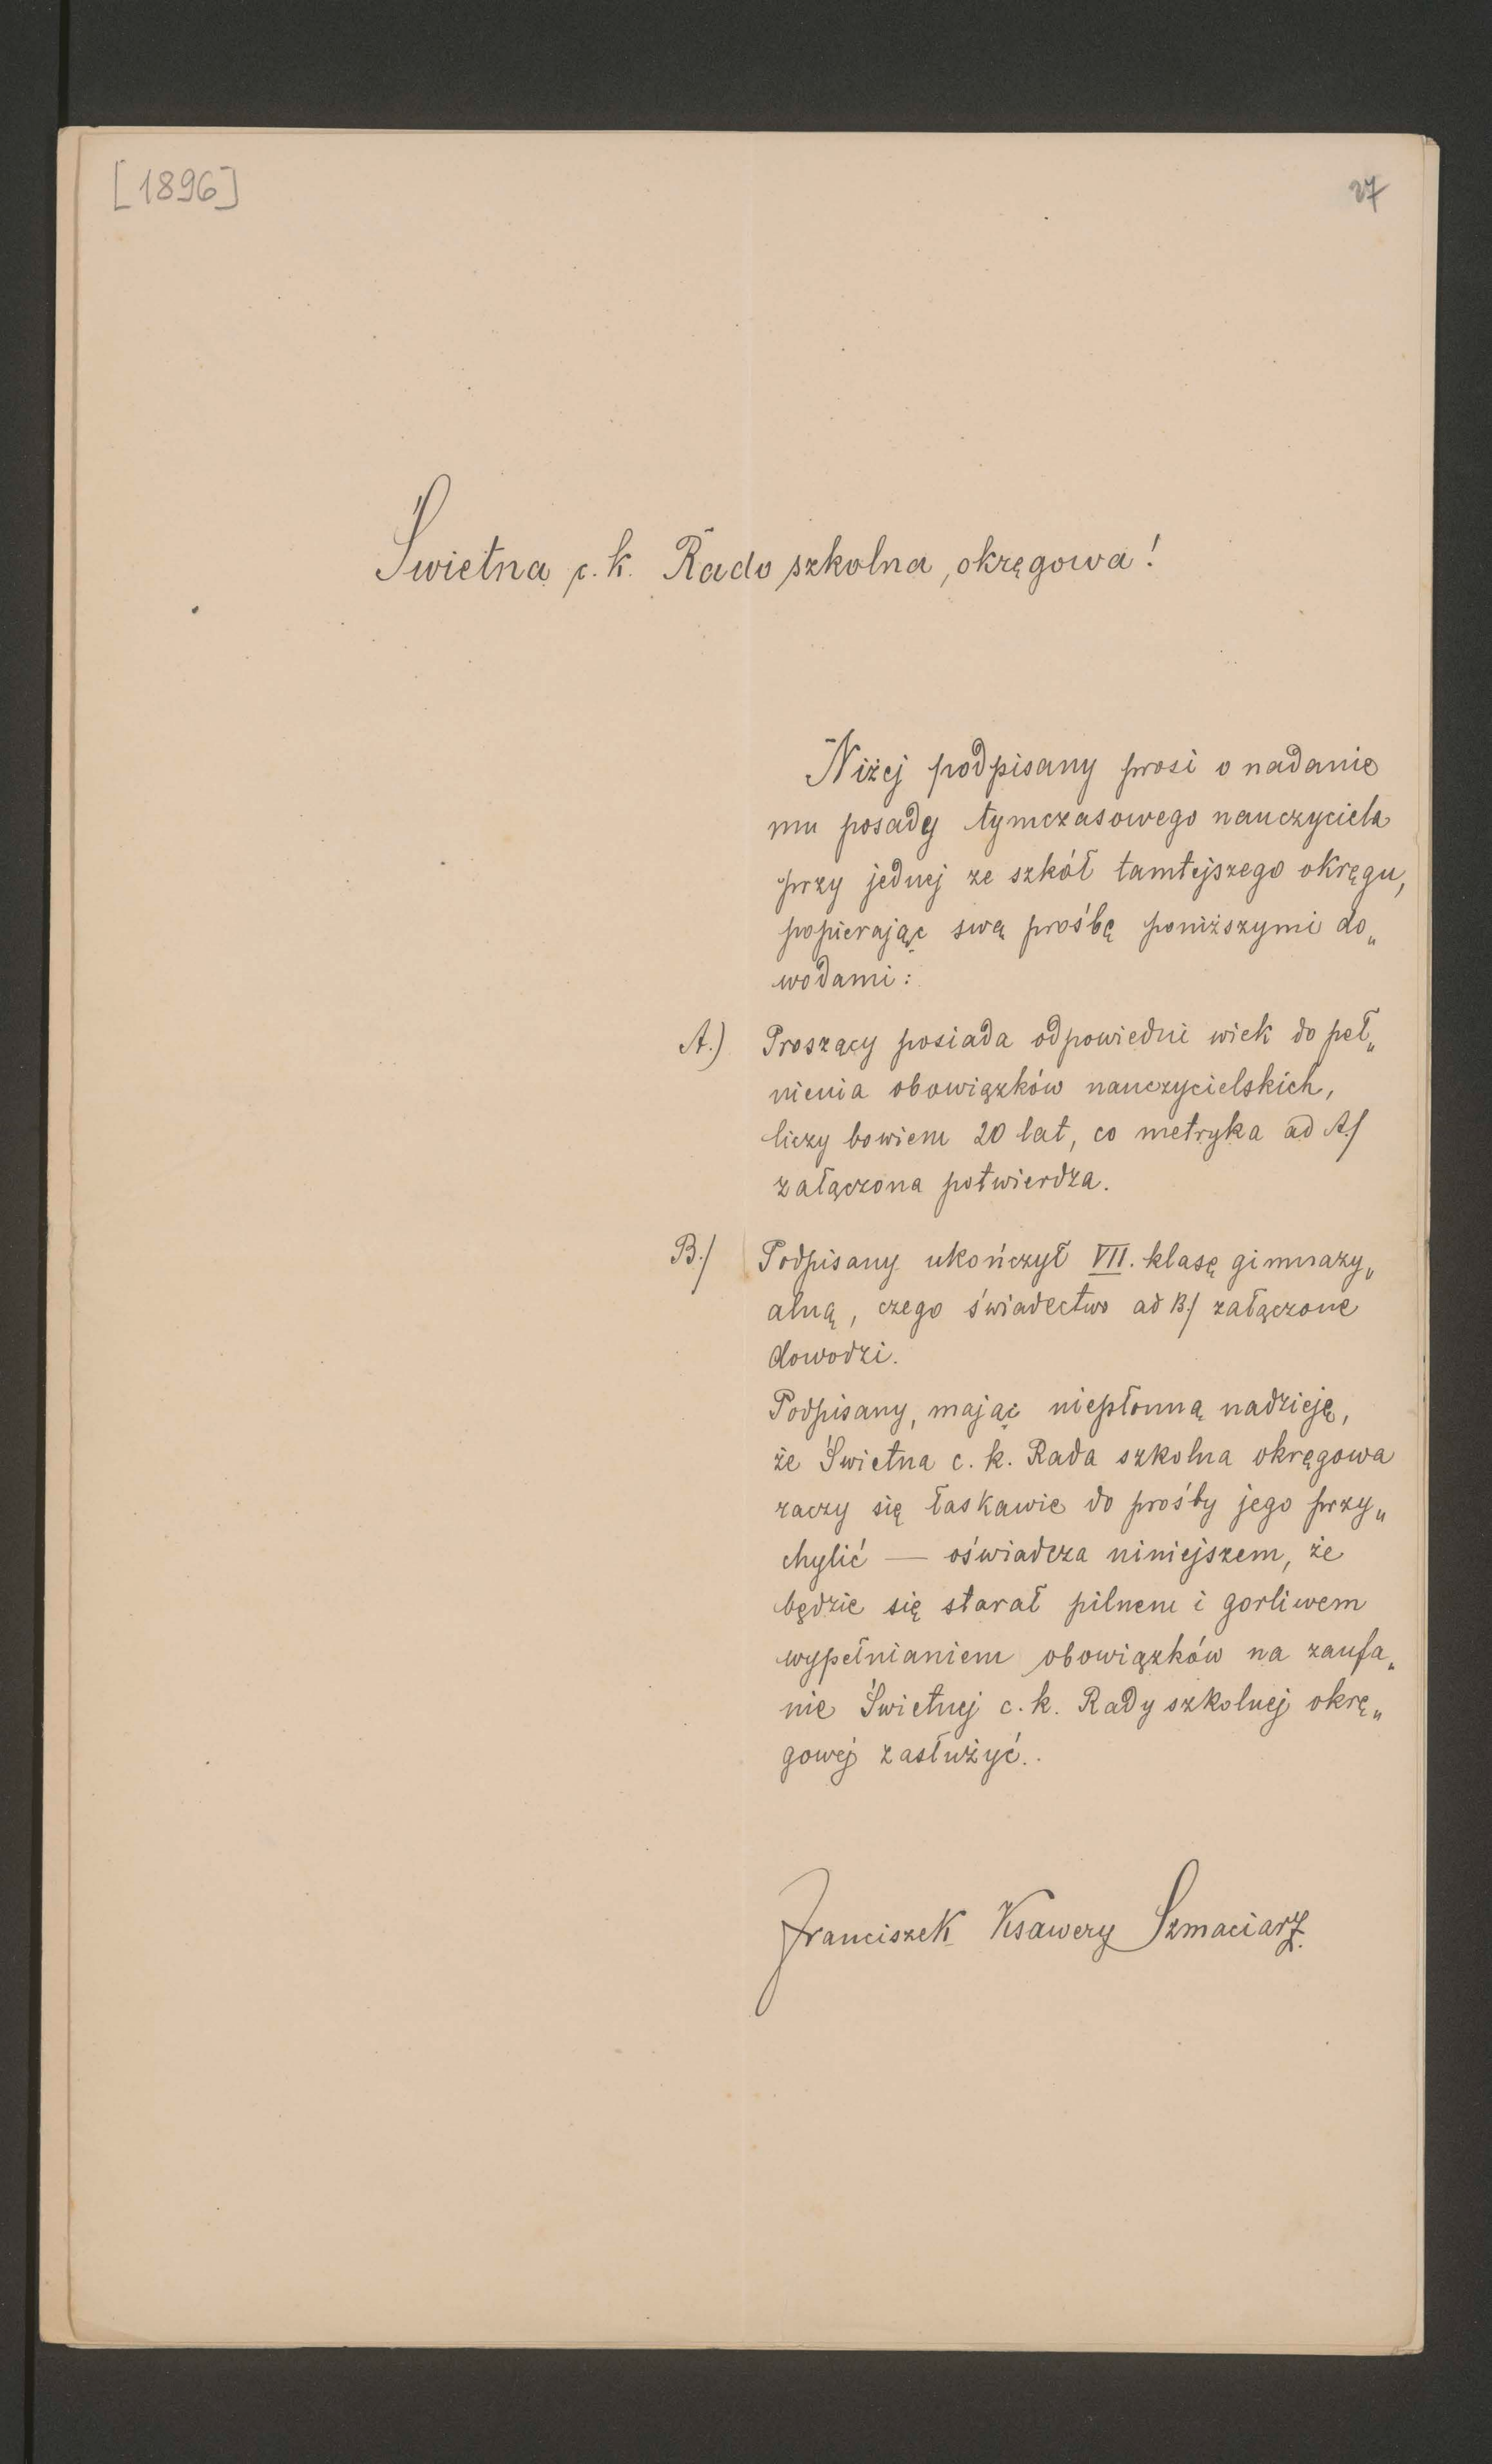 [1896]
27
Świetna c. k. Rado szkolna, okręgowa!
Niżej podpisany prosi o nadanie
mu posady tymczasowego nauczyciela
przy jednej ze szkół tamtejszego okręgu,
popierając swą prośbę poniższymi do„
wodami:
A.) Proszący posiada odpowiedni wiek do peł„
nienia obowiązków nauczycielskich,
liczy bowiem 20 lat, co metryka ad A./
załączona potwierdza.
B./ Podpisany ukończył VII. klasę gimnazy„
alną, czego świadectwo ad B./ załączone
dowodzi.
Podpisany, mając niepłonną nadzieję,
że Świetna c. k. Rada szkolna okręgowa
raczy się łaskawie do prośby jego przy„
chylić — oświadcza niniejszem, że
będzie się starał pilnem i gorliwem
wypełnianiem obowiązków na zaufa„
nie Świetnej c. k. Rady szkolnej okrę„
gowej zasłużyć.
Franciszek Ksawery Szmaciarz.